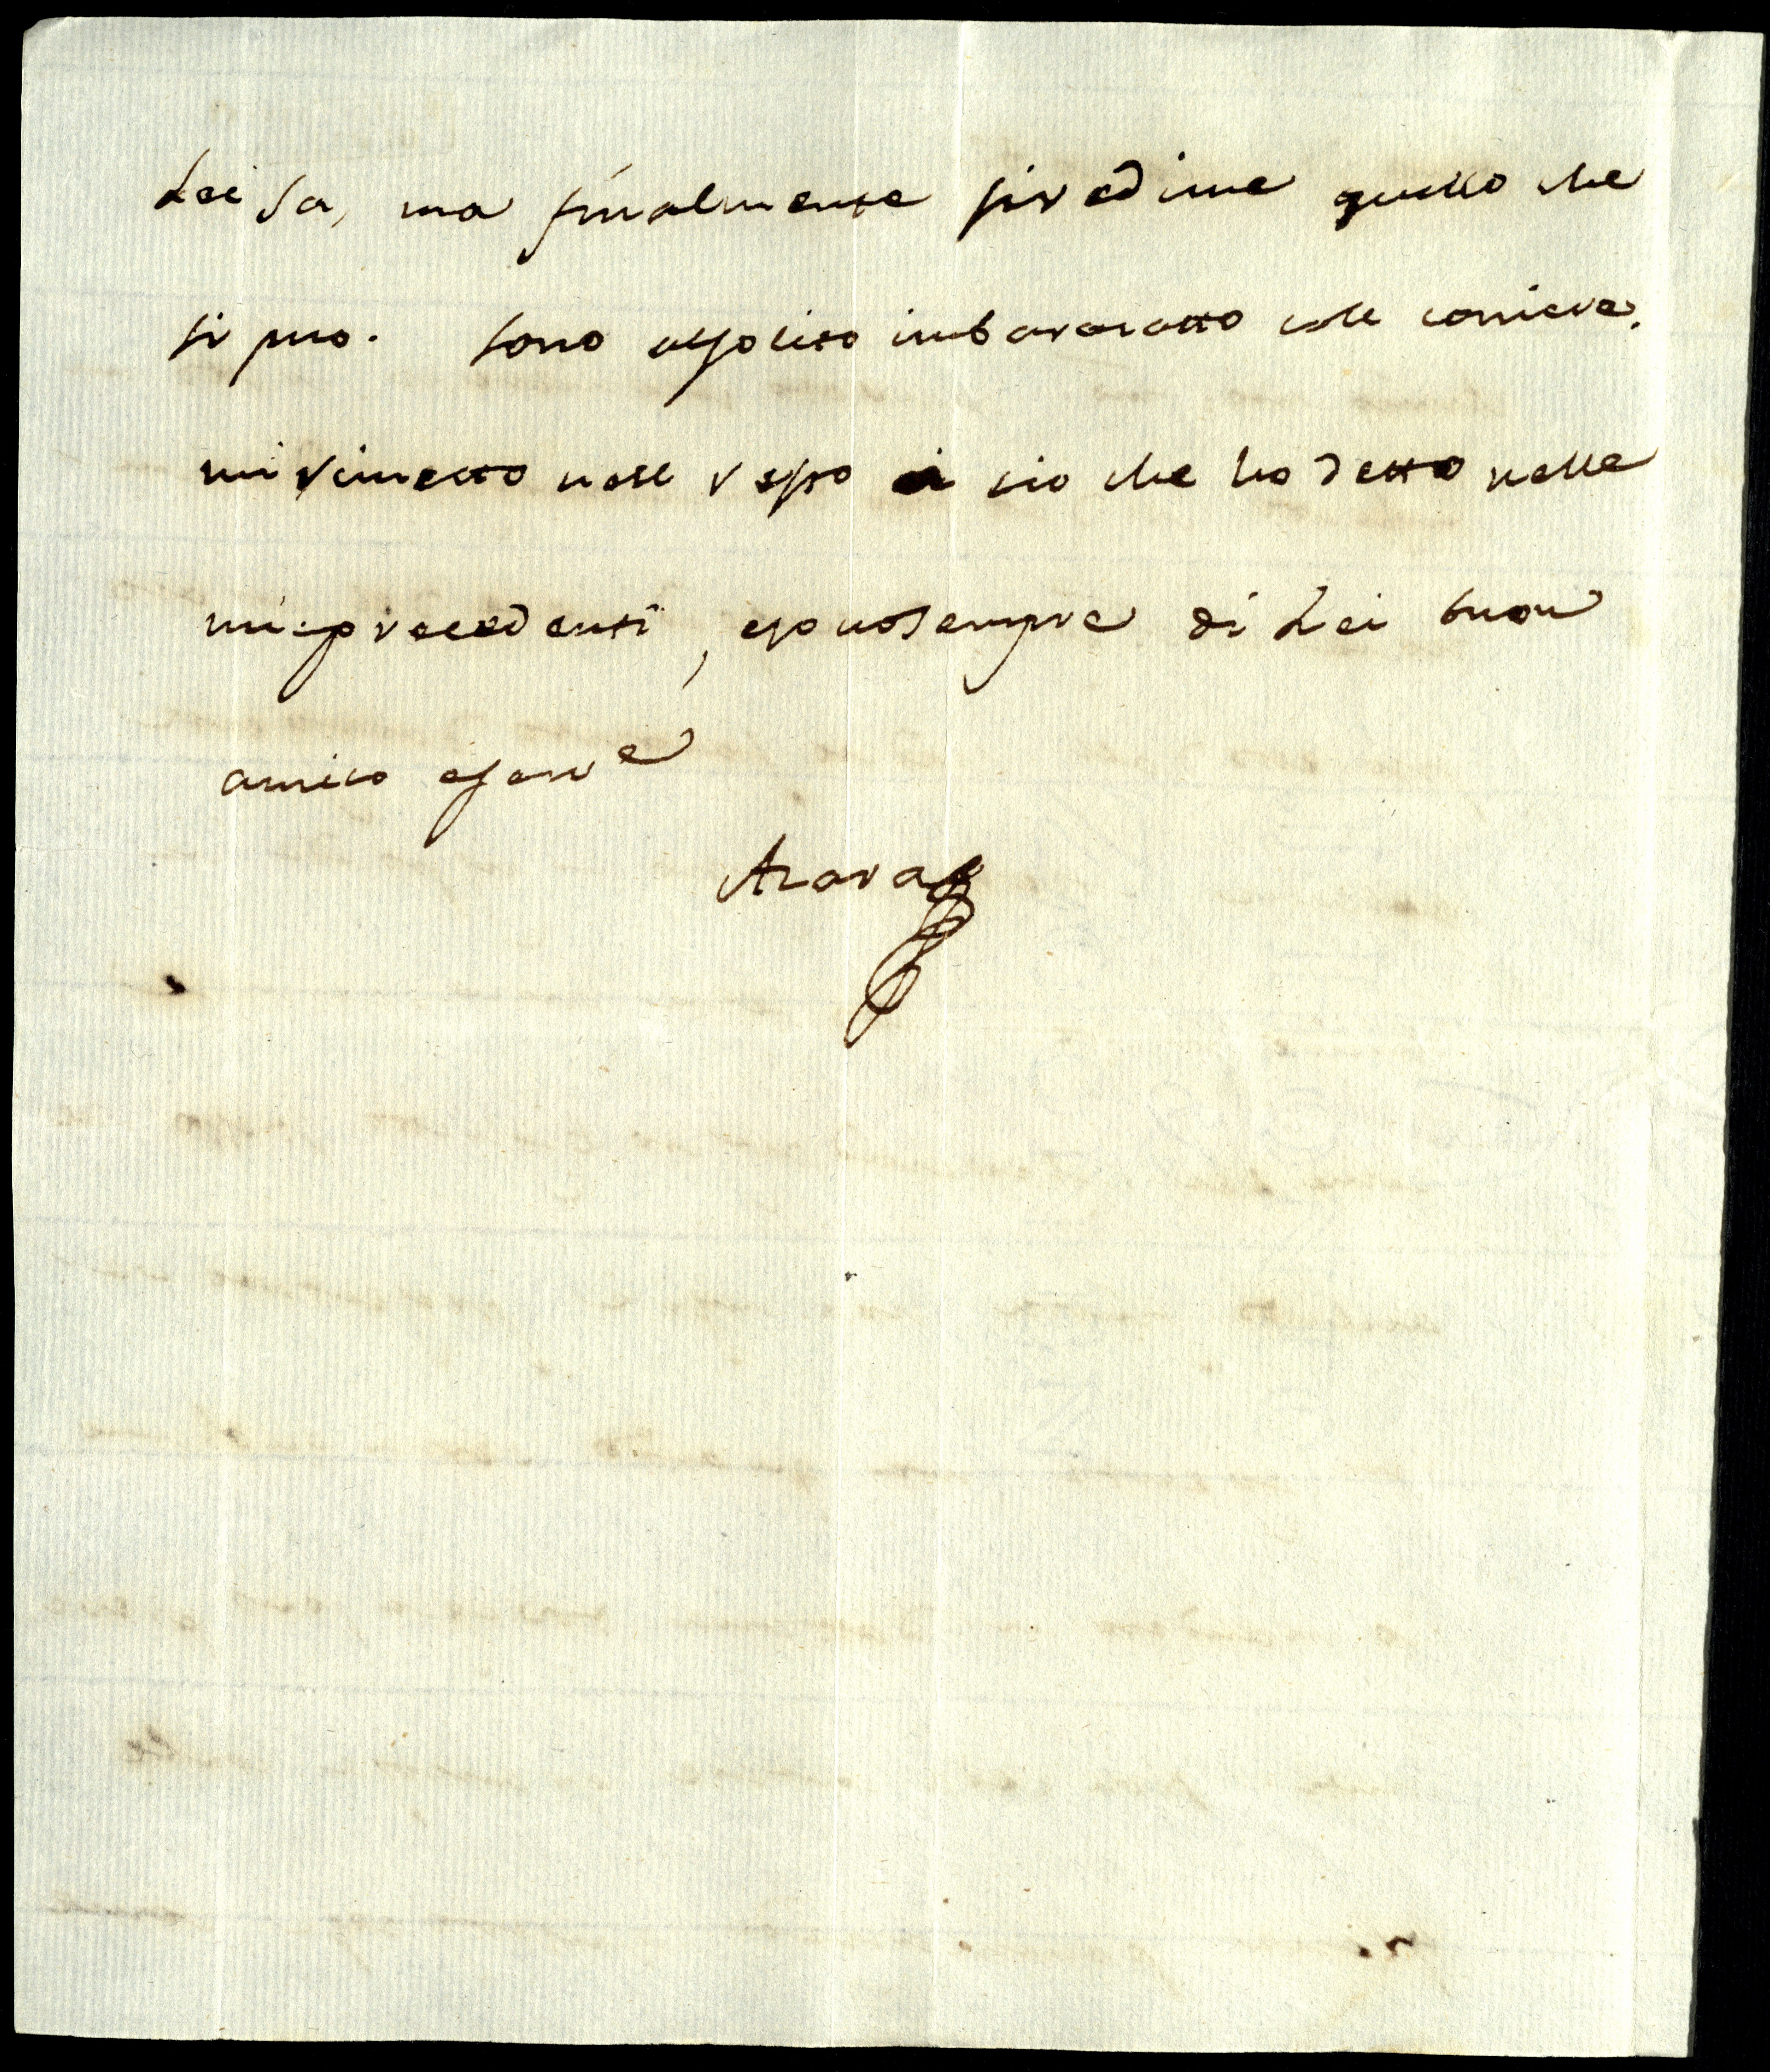 Lei sa, ma finalmente si redime quello che
si puo. Sono al solito imbarazatto colle corriere.
mi rimetto nell resto a cio che ho detto nelle
mie precedenti, e sono sempre di Lei buon
amico e serv.e
Azara